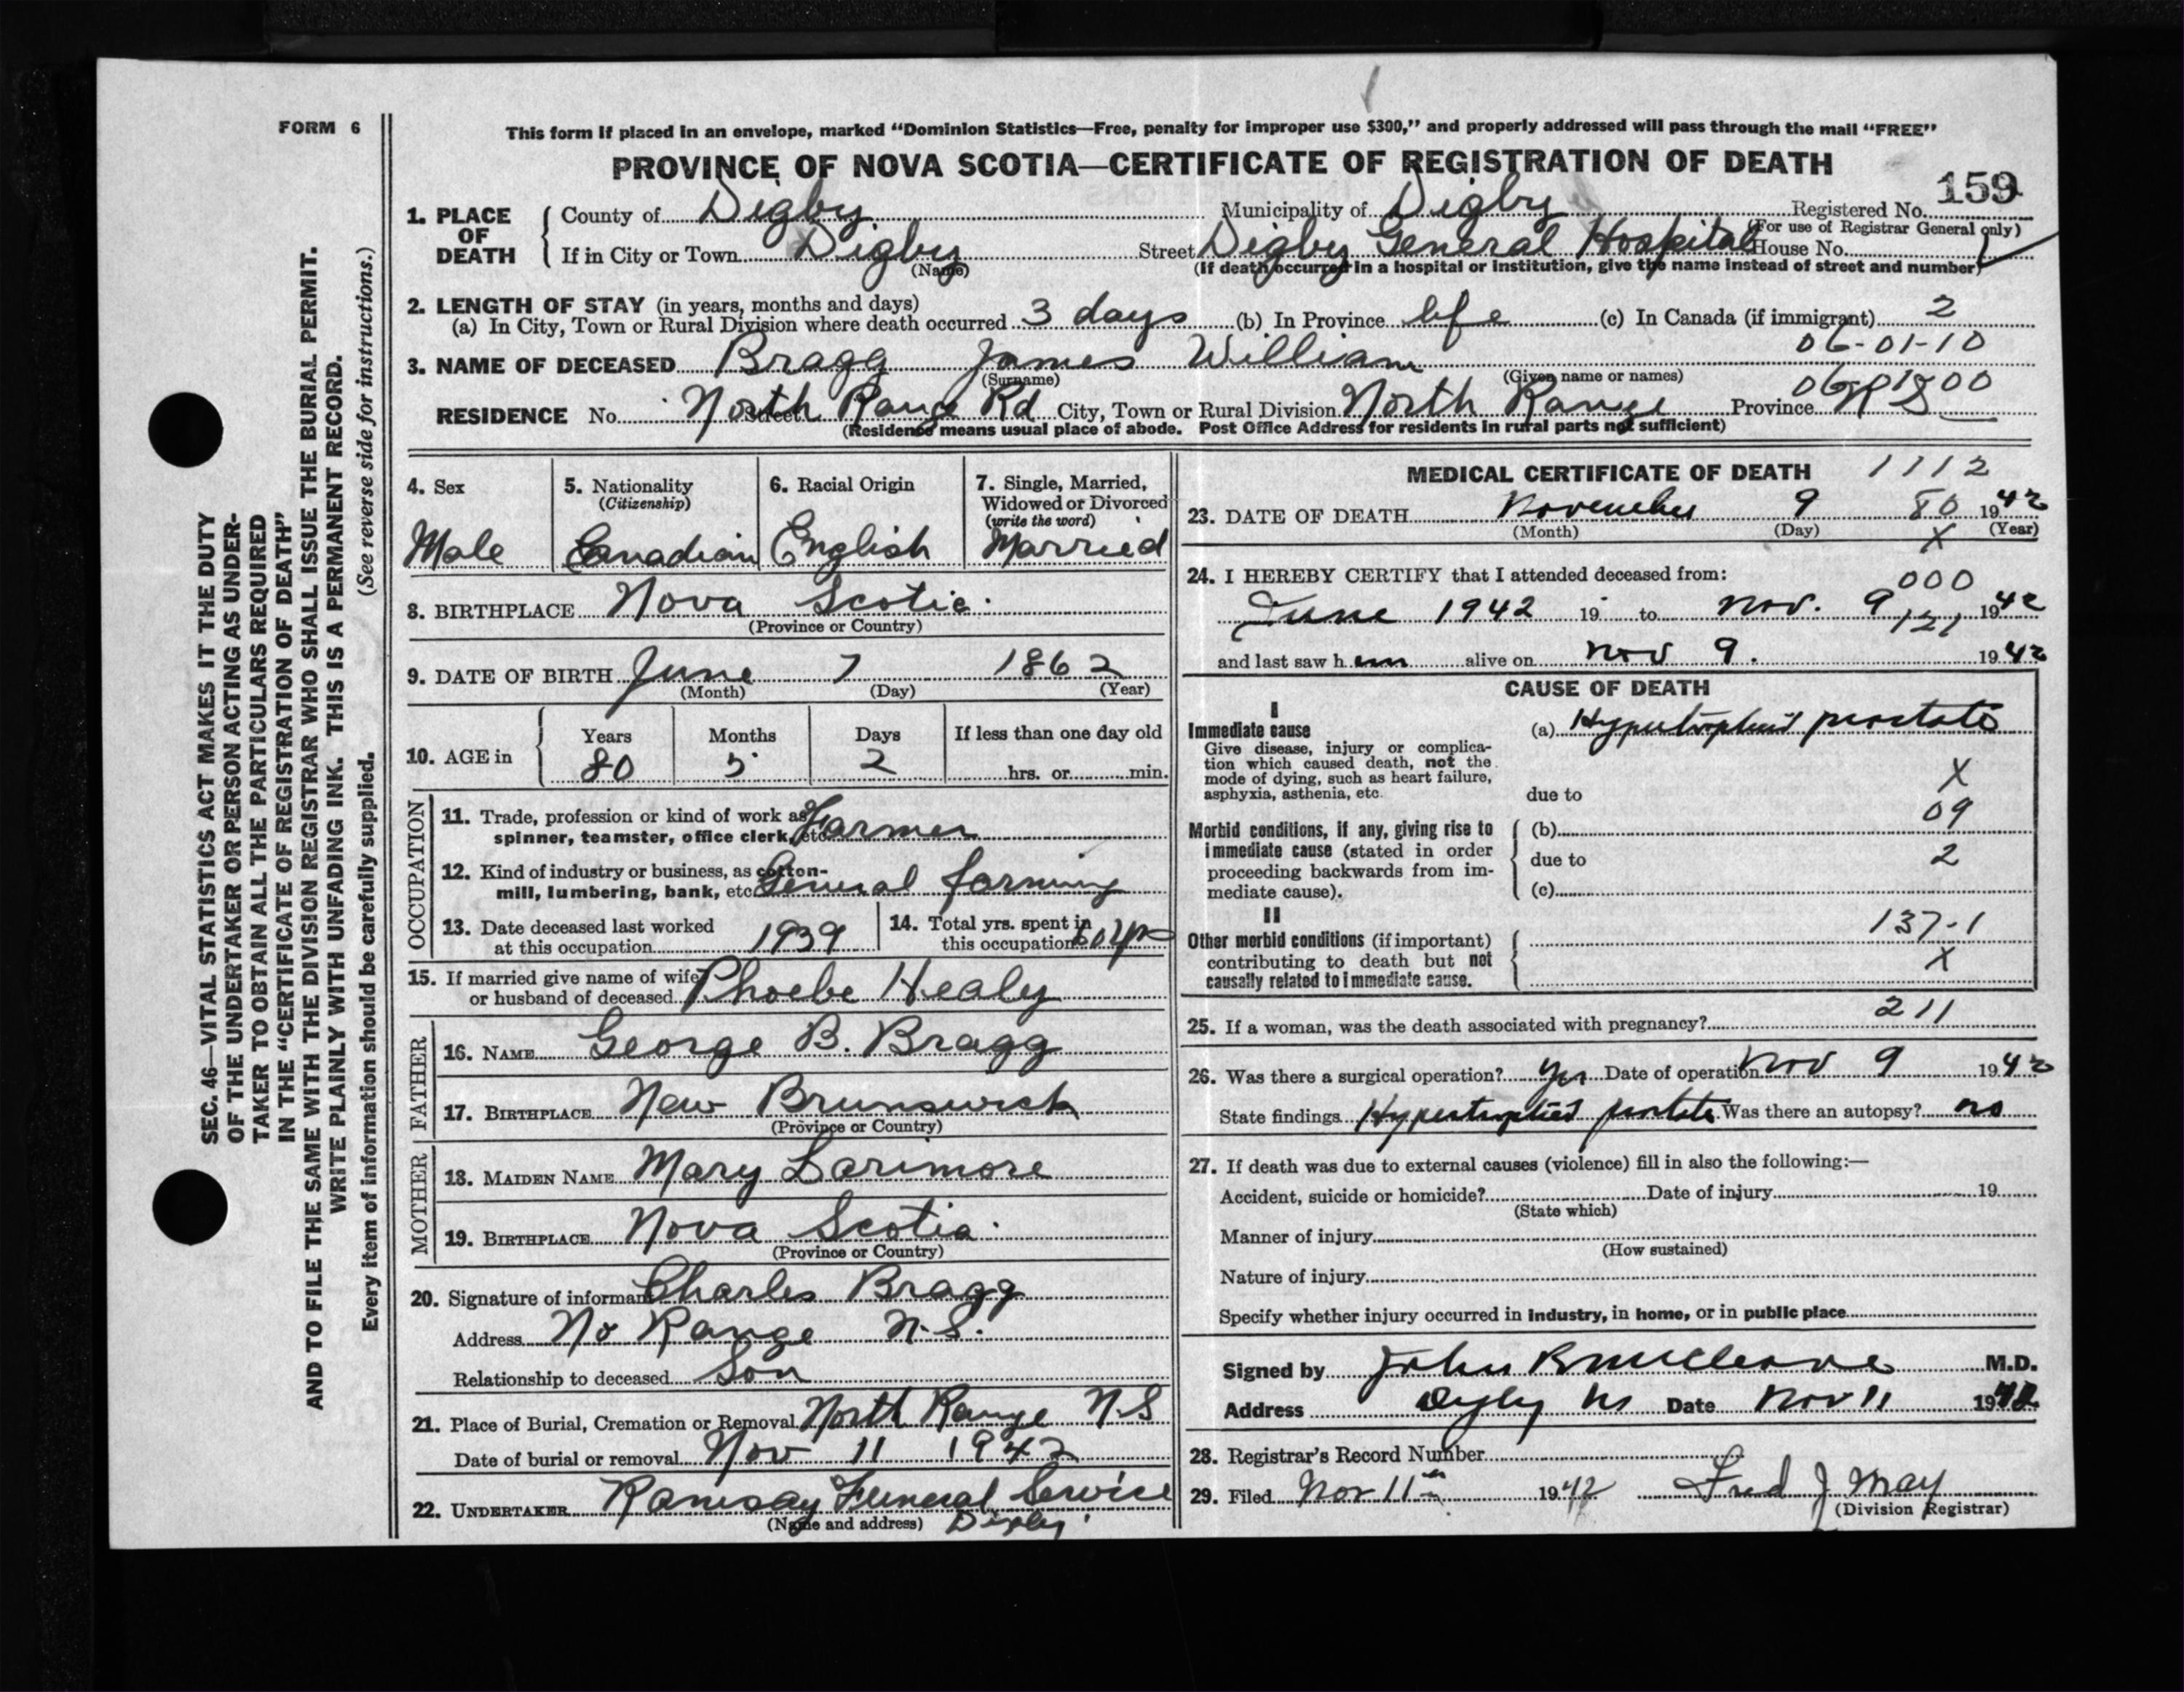 FORM 6
This form if placed in an envelope, marked "Dominion Statistics—Free, penalty for improper use $300," and properly addressed will pass through the mail "FREE"
PROVINCE OF NOVA SCOTIA—CERTIFICATE OF REGISTRATION OF DEATH
159
1. PLACE OF DEATH County of Digby Municipality of Digby Registered No.
(For use of Registrar General only)
If in City or Town Digby Street Digby General Hospital House No.
(Name) (If death occurred in a hospital or institution, give the name instead of street and number)
2. LENGTH OF STAY (in years, months and days)
(a) In City, Town or Rural Division where death occurred 3 days (b) In Province life (c) In Canada (if immigrant) 2
06-01-10
3. NAME OF DECEASED Bragg James William
(Surname) (Given name or names)
RESIDENCE No. North Range Rd City, Town or Rural Division North Range Province N S
Street
(Residence means usual place of abode. Post Office Address for residents in rural parts not sufficient)
4. Sex Male
5. Nationality (Citizenship) Canadian
6. Racial Origin English
7. Single, Married, Widowed or Divorced (write the word) Married
8. BIRTHPLACE Nova Scotia
(Province or Country)
9. DATE OF BIRTH June 7 1862
(Month) (Day) (Year)
10. AGE in Years 80 Months 5 Days 2 If less than one day old hrs. or min.
OCCUPATION
11. Trade, profession or kind of work as spinner, teamster, office clerk, etc. Farmer
12. Kind of industry or business, as cotton-mill, lumbering, bank, etc. General farming
13. Date deceased last worked at this occupation 1939
14. Total yrs. spent in this occupation 60 yrs
15. If married give name of wife or husband of deceased Phoebe Healy
FATHER
16. NAME George B. Bragg
17. BIRTHPLACE New Brunswick
(Province or Country)
MOTHER
18. MAIDEN NAME Mary Larimore
19. BIRTHPLACE Nova Scotia
(Province or Country)
20. Signature of informant Charles Bragg
Address No Range N.S.
Relationship to deceased Son
21. Place of Burial, Cremation or Removal North Range N.S
Date of burial or removal Nov 11 1942
22. UNDERTAKER Ramsay Funeral Service
(Name and address) Digby
MEDICAL CERTIFICATE OF DEATH 1112
23. DATE OF DEATH November 9 80 1942
(Month) (Day) X (Year)
24. I HEREBY CERTIFY that I attended deceased from: 000
June 1942 19 to Nov. 9 1942
121
and last saw him alive on Nov 9. 1942
CAUSE OF DEATH
I
Immediate cause (a) Hypertrophied prostate
Give disease, injury or complication which caused death, not the mode of dying, such as heart failure, asphyxia, asthenia, etc. due to X
09
Morbid conditions, if any, giving rise to immediate cause (stated in order proceeding backwards from immediate cause). (b)
due to 2
(c)
II
137-1
Other morbid conditions (if important) contributing to death but not causally related to immediate cause. X
211
25. If a woman, was the death associated with pregnancy?
26. Was there a surgical operation? yes Date of operation Nov 9 1942
State findings Hypertrophied prostate Was there an autopsy? no
27. If death was due to external causes (violence) fill in also the following:—
Accident, suicide or homicide? Date of injury 19
(State which)
Manner of injury
(How sustained)
Nature of injury
Specify whether injury occurred in industry, in home, or in public place
Signed by John M.D.
Address Digby NS Date Nov 11 1942
28. Registrar's Record Number
29. Filed Nov 11th 1942 Fred J May
(Division Registrar)
SEC. 46—VITAL STATISTICS ACT MAKES IT THE DUTY
OF THE UNDERTAKER OR PERSON ACTING AS UNDER-
TAKER TO OBTAIN ALL THE PARTICULARS REQUIRED
IN THE "CERTIFICATE OF REGISTRATION OF DEATH"
AND TO FILE THE SAME WITH THE DIVISION REGISTRAR WHO SHALL ISSUE THE BURIAL PERMIT.
WRITE PLAINLY WITH UNFADING INK. THIS IS A PERMANENT RECORD.
Every item of information should be carefully supplied. (See reverse side for instructions.)